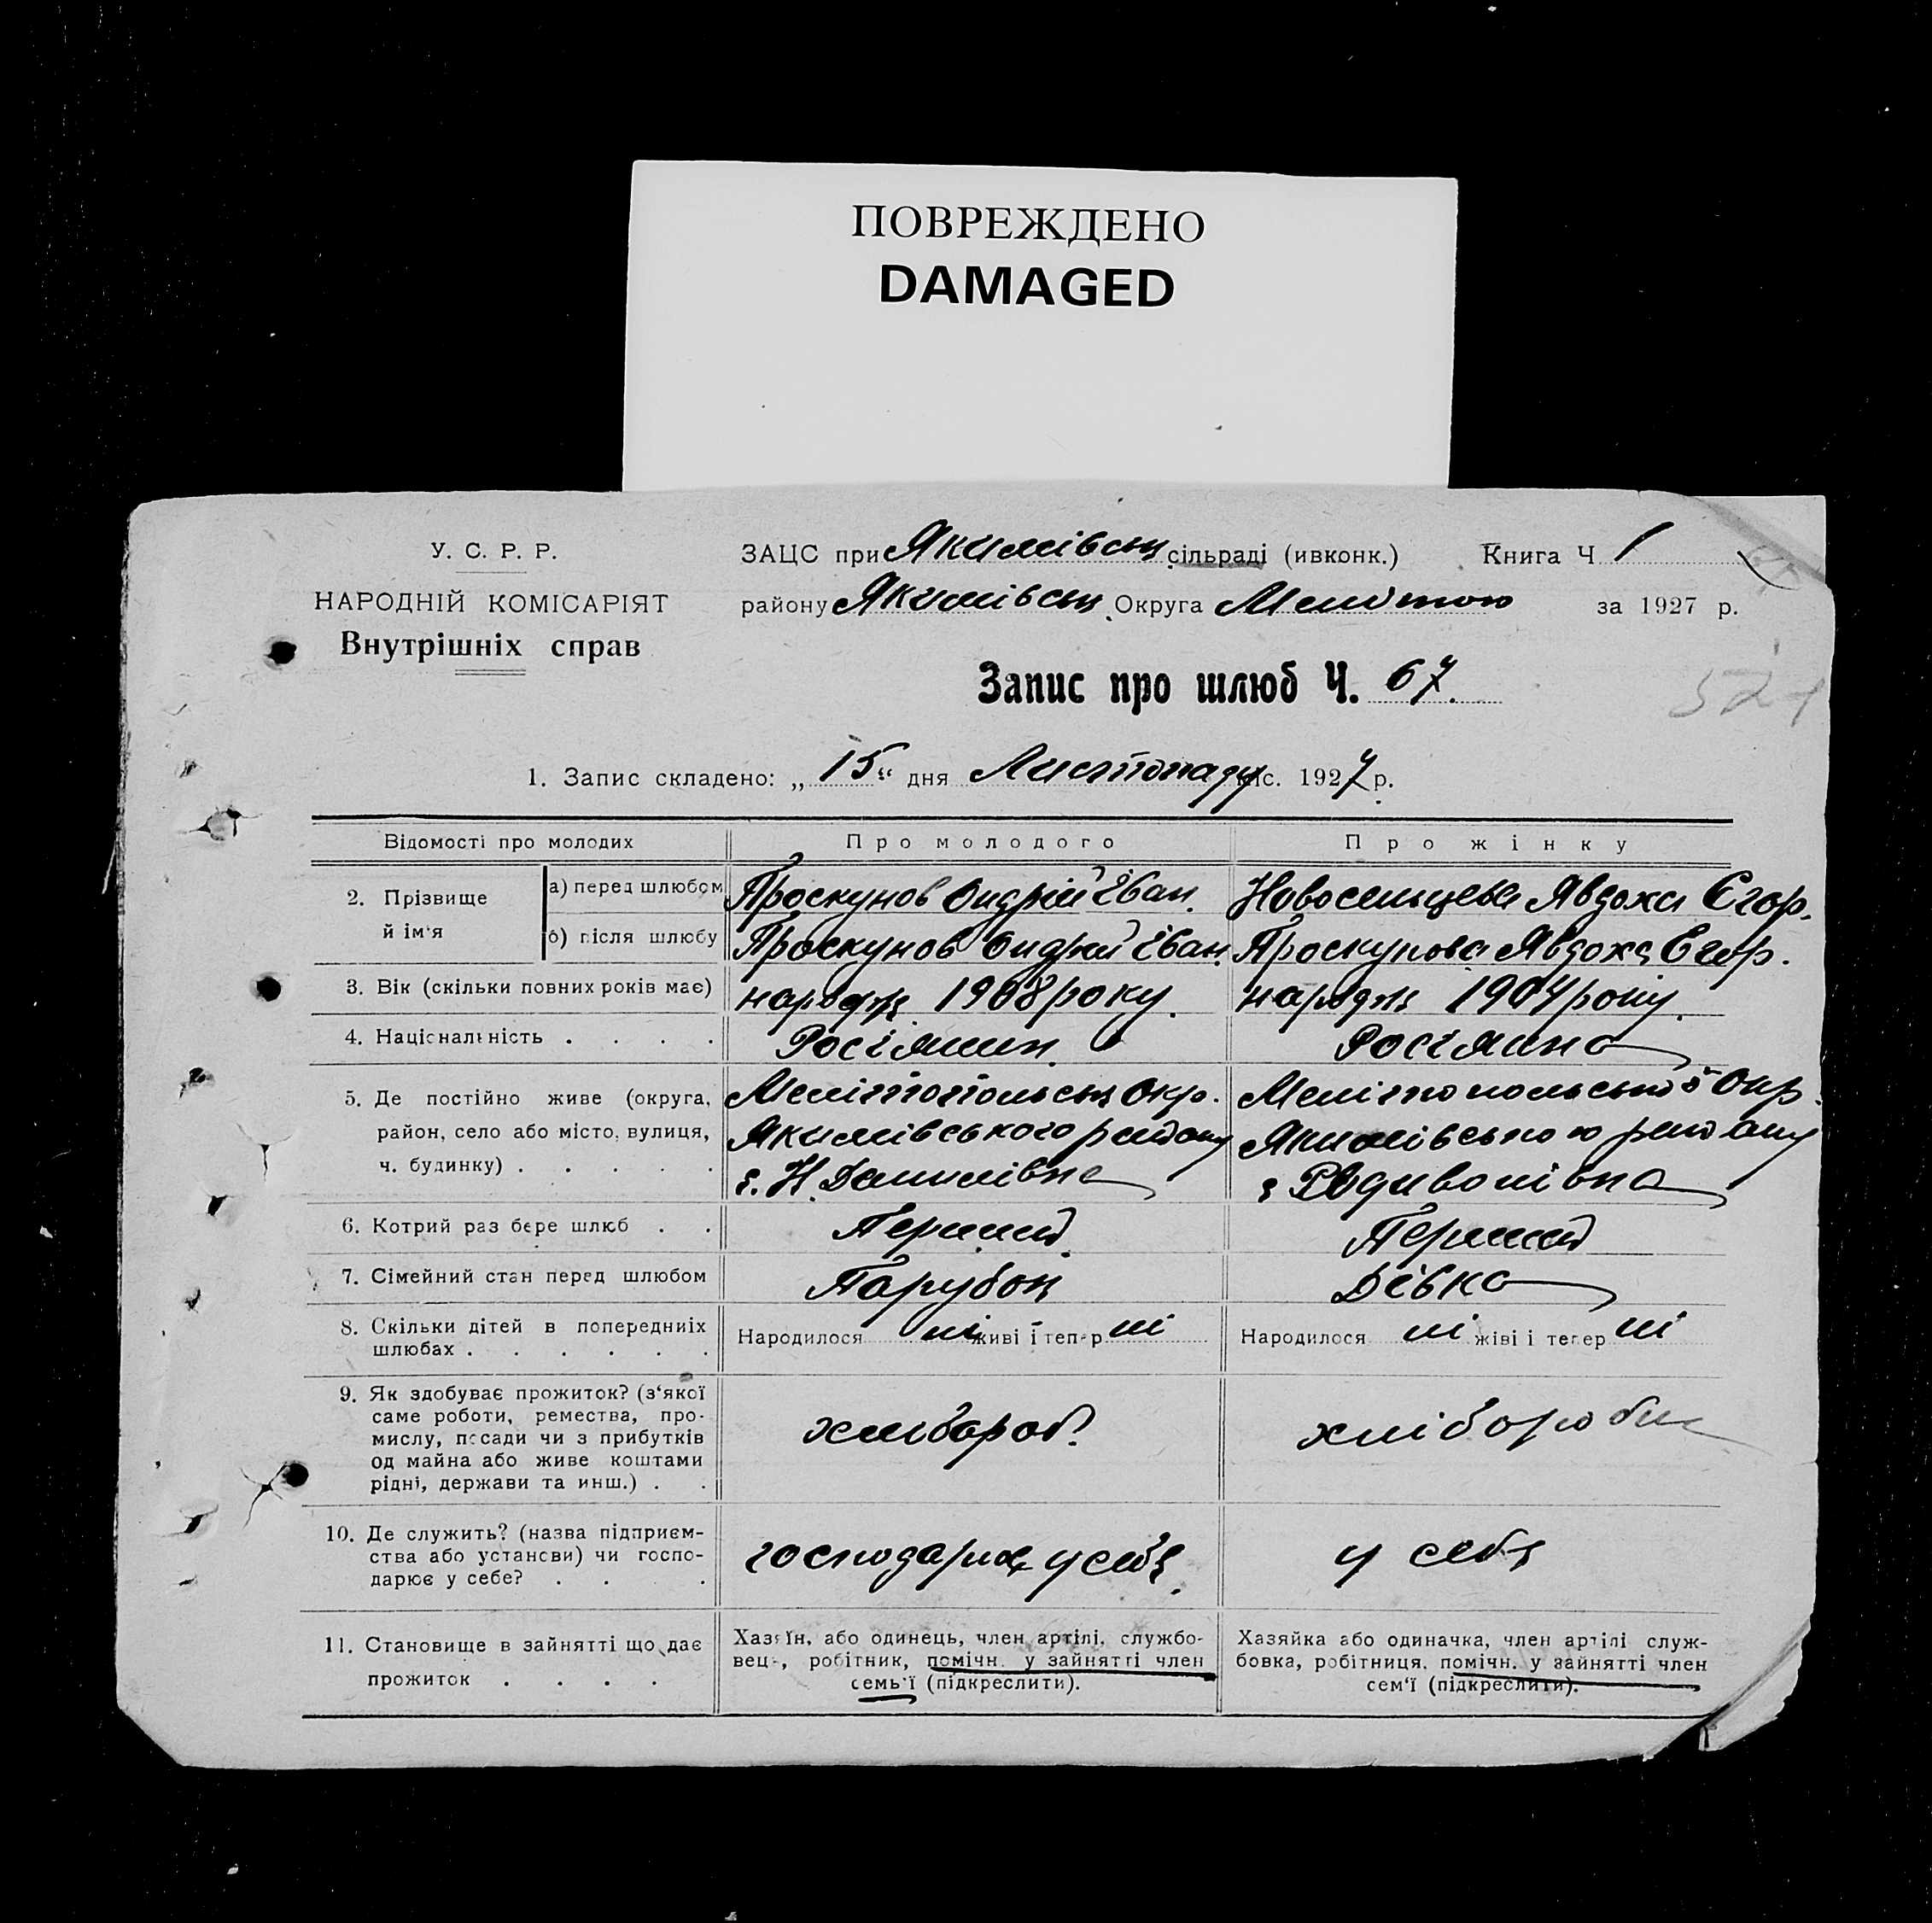 ПОВРЕЖДЕНО
DAMAGED
У. С. Р. Р.
НАРОДНІЙ КОМІСАРІЯТ
Внутрішніх справ
ЗАЦС при Якимівськ сільраді (ивконк.) Книга Ч 1
району Якимівськ Округа за 1927 р.
Запис про шлюб Ч. 67.
521
1. Запис складено: „ 15 “ дня Листопаду міс. 1927 р.
Відомості про молодих
Про молодого
Про жінку
2. Прізвище й ім‘я
а) перед шлюбом
Проскунов Ондрій Іван.
Новосельцева Явдоха Єгор.
б) після шлюбу
Проскунов Ондрій Іван.
Проскунова Явдоха Єгор.
3. Вік (скільки повних років має)
народж 1908 року.
народж 1904 року.
4. Національність . . . .
Росіянин.
Росіянка
5. Де постійно живе (округа,
район, село або місто, вулиця,
ч. будинку) . . . . .
Мелітопольськ Окр.
Якимівського району
с. Н. Данилівка
Мелітопольської Окр.
Якимівського району
с Родивонівка
6. Котрий раз бере шлюб . .
Перший.
Перший
7. Сімейний стан перед шлюбом
Парубок
Дівка
8. Скільки дітей в попередниіх
шлюбах . . . . . .
Народилося ні живі і тепер ні
Народилося ні жіві і тепер ні
9. Як здобуває прожиток? (з‘якої
саме роботи, ремества, про-
мислу, посади чи з прибутків
од майна або живе коштами
рідні, держави та инш.) . .
хлібороб.
хліборобка
10. Де служить? (назва підприєм-
ства або установи) чи госпо-
дарює у себе? . . .
господарює у себе.
у себе
11. Становище в зайнятті що дає
прожиток . . . .
Хазяїн, або одинець, член артілі, службо-
вець, робітник, помічн. у зайнятті член
семь‘ї (підкреслити).
Хазяйка або одиначка, член артілі служ-
бовка, робітниця, помічн. у зайнятті член
сем‘ї (підкреслити).